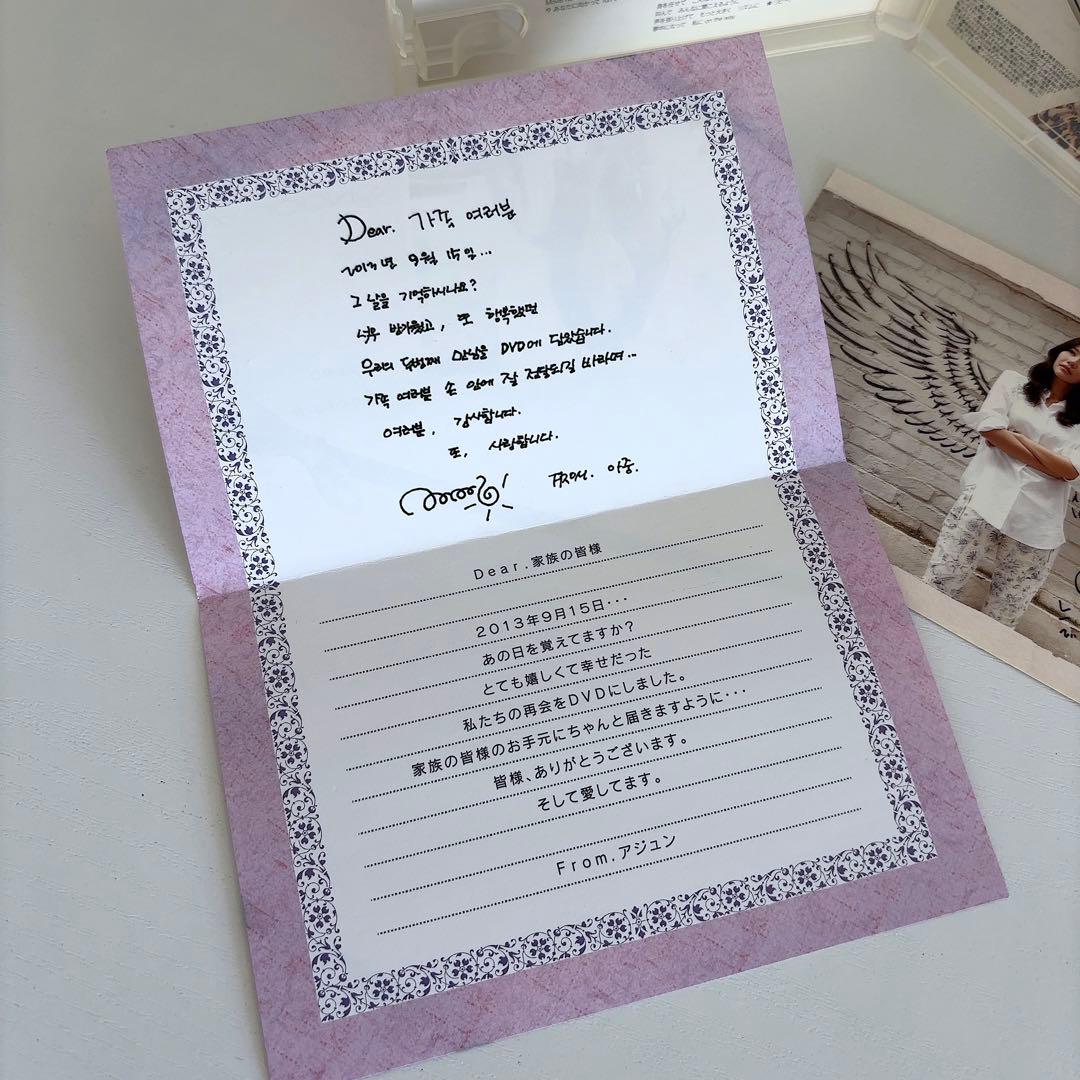 身を任せて
あなたに向かって
みんなに聞こえるように
on the way
Dear. 가족 여러분
2013년 9월 15일...
그 날을 기억하시나요?
너무 반가웠고, 또 행복했던
우리의 두번째 만남을 DVD에 담았습니다.
가족 여러분 손 안에 잘 전달되길 바라며...
여러분, 감사합니다.
또, 사랑합니다.
From. 아중.
Dear.家族の皆様
2013年9月15日・・・
あの日を覚えてますか?
とても嬉しくて幸せだった
私たちの再会をDVDにしました。
家族の皆様のお手元にちゃんと届きますように・・・
皆様、ありがとうございます。
そして愛してます。
From.アジュン